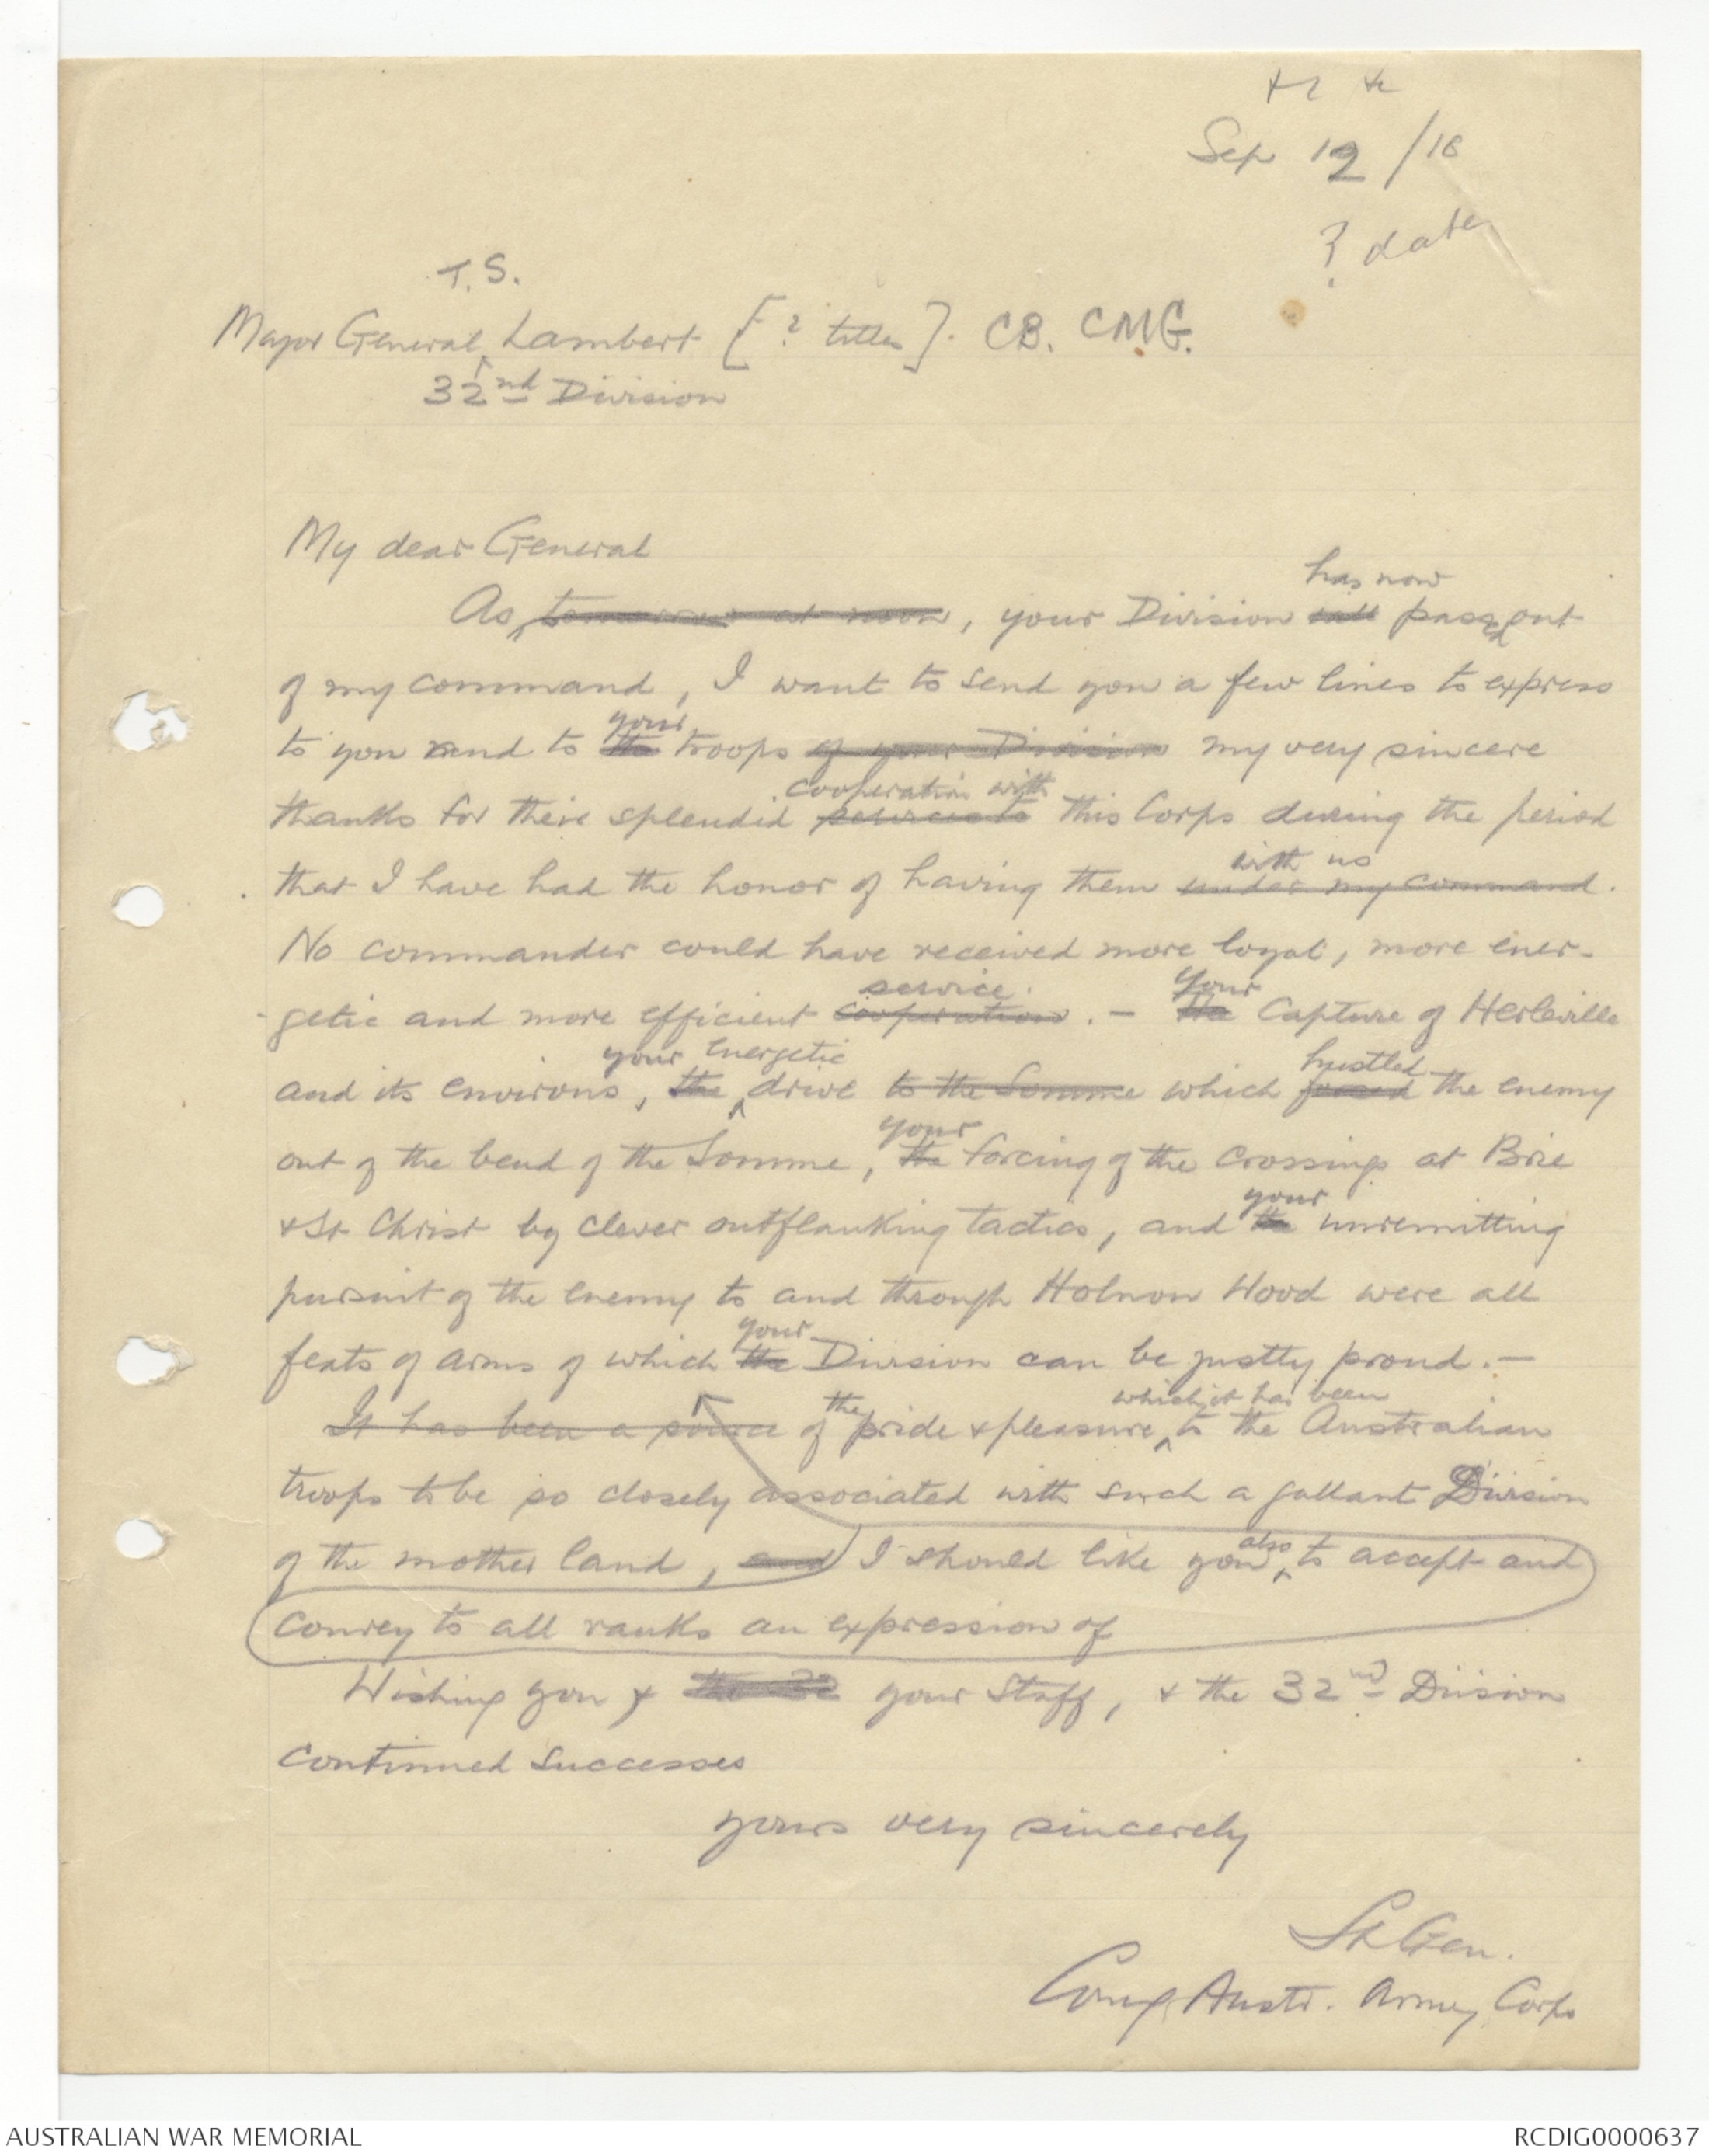 Sep 12 /18
? date
T.S.
Major General Lambert [? titles]. CB. CMG.
32nd Division
My dear General
has now
As tomorrow at noon, your Division will passed out
of my command, I want to send you a few lines to express
your
to you and to the troops of your Division my very sincere
cooperation with
thanks for their splendid services to this Corps during the period
with us
that I have had the honor of having them under my command.
No commander could have received more loyal, more ener-
service. your
-getic and more efficient cooperation. — the capture of Herleville
your energetic hustled
and its environs, the drive to the Somme which forced the enemy
your
out of the bend of the Somme, the forcing of the crossings at Brie
your
& St Christ by clever outflanking tactics, and the unremitting
pursuit of the enemy to and through Holnon Wood were all
your
feats of arms of which the Division can be justly proud. —
the which it has been
It has been a source of pride & pleasure to the Australian
troops to be so closely associated with such a gallant Division
also
of the mother land, and I should like you to accept and
convey to all ranks an expression of
Wishing you & the 32 your Staff, & the 32nd Division
continued successes
yours very sincerely
Lt Gen.
Comg. Austr. Army Corps
AUSTRALIAN WAR MEMORIAL
RCDIG0000637